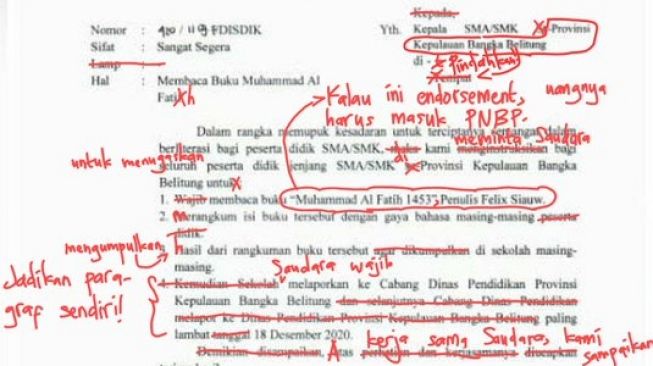 Kepada,
Nomor : 420/1109.f/DISDIK Yth. Kepala SMA/SMK Provinsi
Sifat : Sangat Segera Kepulauan Bangka Belitung
Lamp : di - Pindahkan!
Hal : Membaca Buku Muhammad Al Tempat
Fatih
Kalau ini endorsement, uangnya
harus masuk PNBP.
Dalam rangka memupuk kesadaran untuk terciptanya semangat dalam
meminta Saudara
berliterasi bagi peserta didik SMA/SMK, maka kami menginstruksikan bagi
untuk menugaskan
di
seluruh peserta didik jenjang SMA/SMK Provinsi Kepulauan Bangka
Belitung untuk
1. Wajib membaca buku "Muhammad Al Fatih 1453", Penulis Felix Siauw.
2. Merangkum isi buku tersebut dengan gaya bahasa masing-masing peserta
didik.
mengumpulkan
Hasil dari rangkuman buku tersebut agar dikumpulkan di sekolah masing-
masing.
Jadikan para-
graf sendiri!
Saudara wajib
4. Kemudian Sekolah melaporkan ke Cabang Dinas Pendidikan Provinsi
Kepulauan Bangka Belitung dan selanjutnya Cabang Dinas Pendidikan
melapor ke Dinas Pendidikan Provinsi Kepulauan Bangka Belitung paling
lambat tanggal 18 Desember 2020.
kerja sama Saudara, kami
Demikian disampaikan, Atas perhatian dan kerjasamanya diucapkan
sampaikan